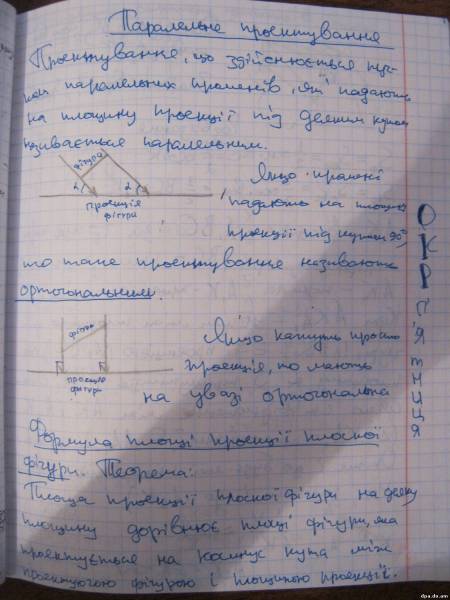 Паралельне проектування
Проектування, що здійснюється пуч-
ком паралельних променів, які падають
на площину проекції під деяким кутом
називається паралельним.
фігура
α α
проекція
фігури
Якщо промені
падають на площину
проекції під кутом 90°
то таке проектування називають
ортогональним.
фігура
проекція
фігури
Якщо кажуть просто
проекція, то мають
на увазі ортогональна
Формула площі проекції плоскої
фігури. Теорема:
Площа проекції плоскої фігури на деяку
площину дорівнює площі фігури, яка
проектується на косинус кута між
проектуючою фігурою і площиною проекції.
ОКР П'ЯТНИЦЯ
dpa.do.am